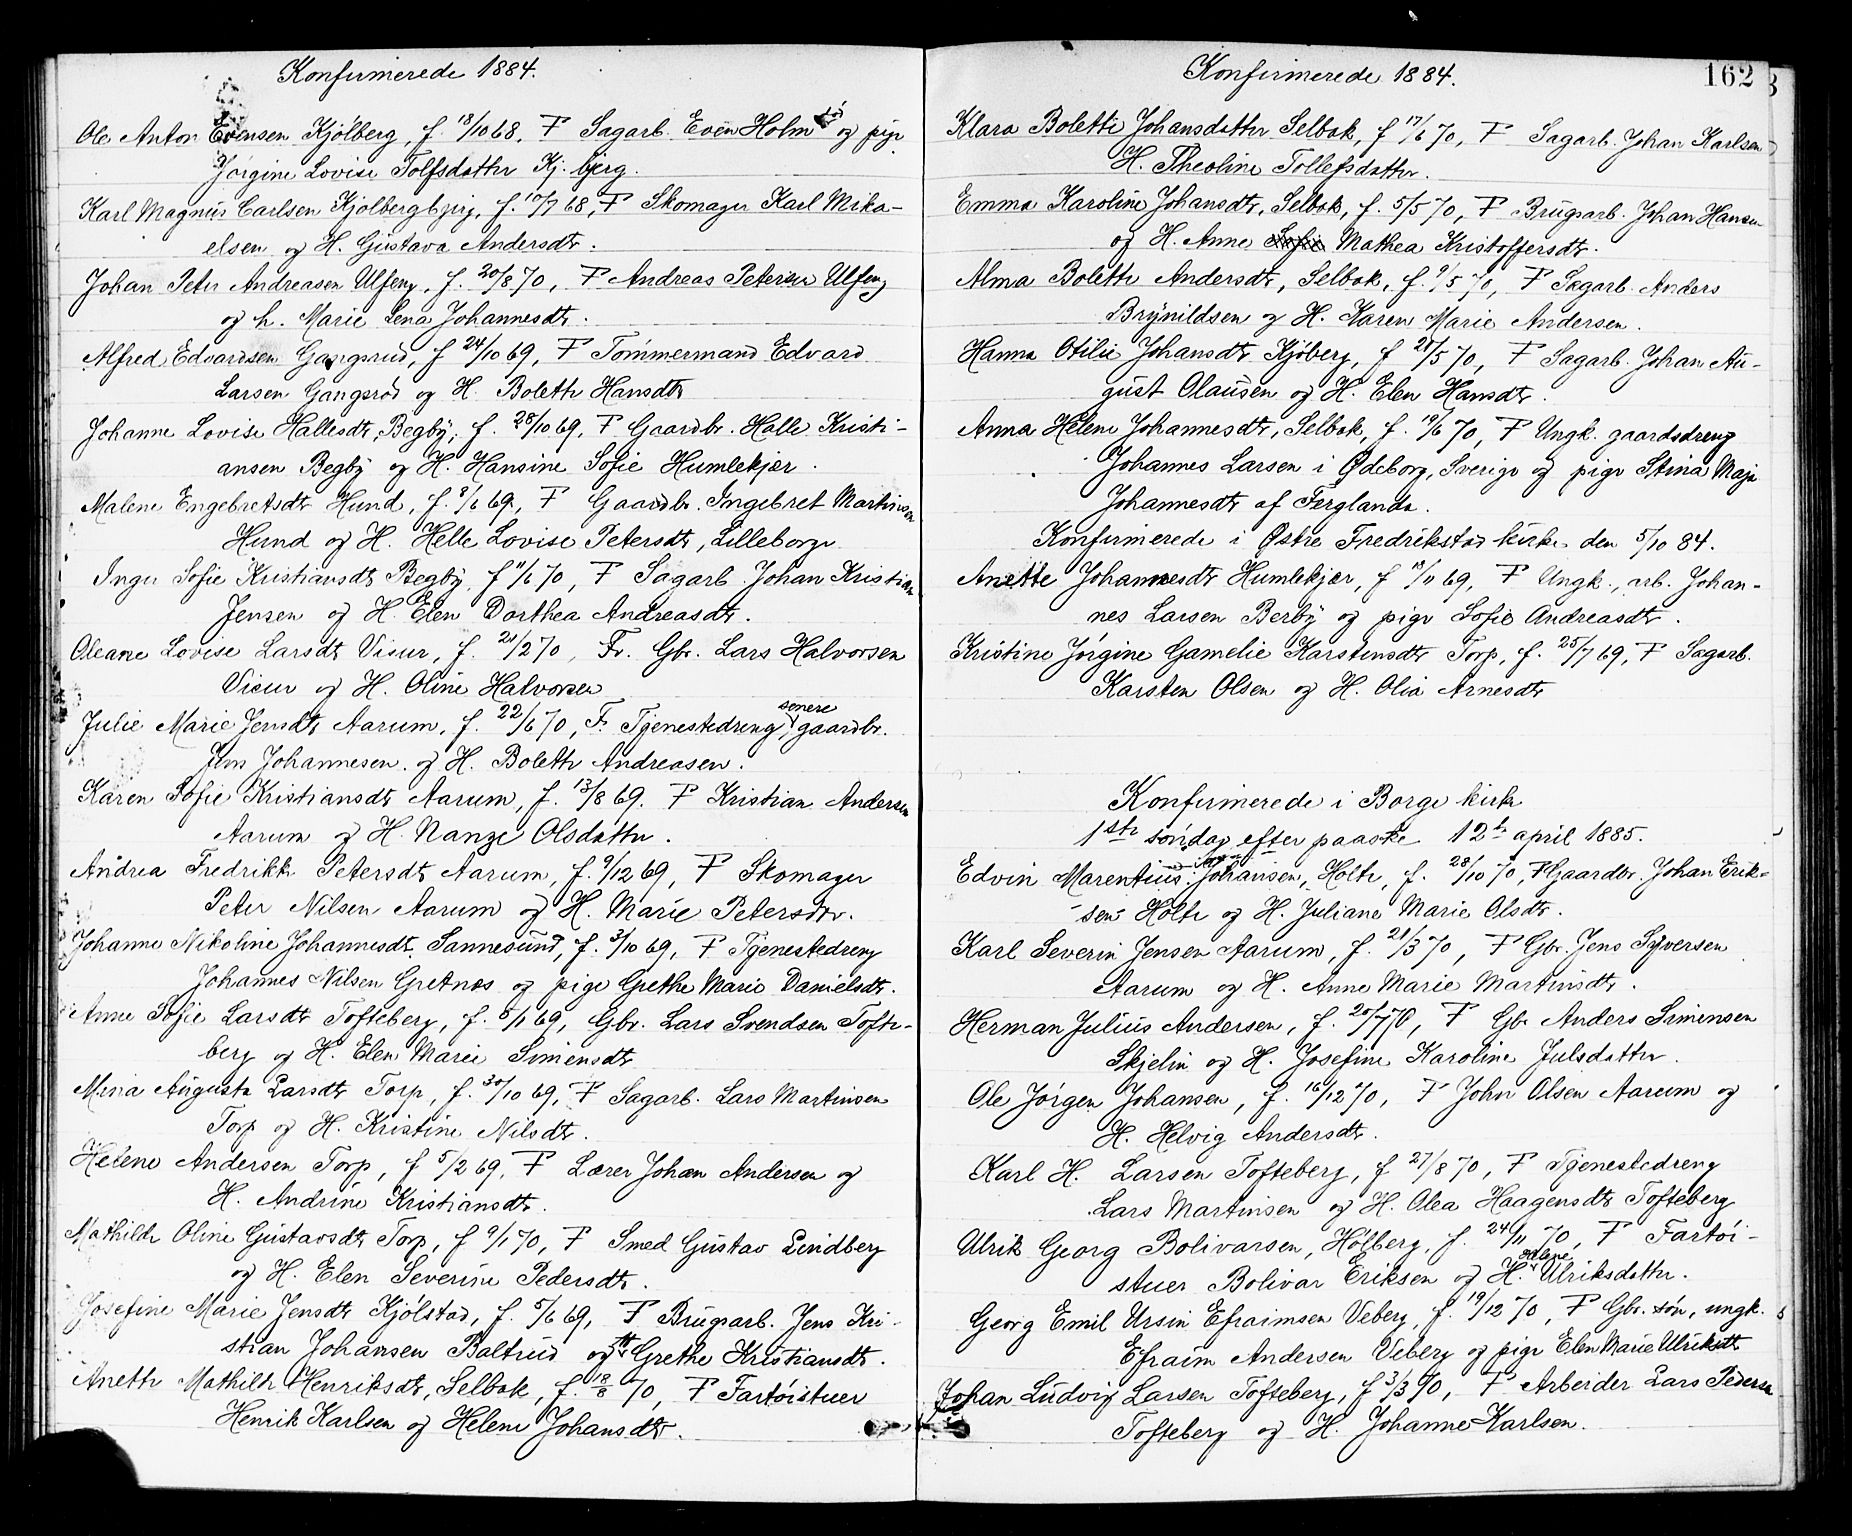 Konfirmerede 1884.
Ole Anton Evensen Kjølberg, f. 18/10 68, F Sagarb. Even Holm og pige
Jørgine Lovise Tolfsdatter Kj. bjerg.
Karl Magnus Carlsen Kjølbergbjerg, f. 10/7 68, F Skomager Karl Mika-
elsen og H. Gustava Andersdtr.
Johan Peter Andreasen Ulfeng, f. 20/8 70, F Andreas Petersen Ulfeng
og h. Marie Lena Johannesdtr.
Alfred Edvardsen Gangsrud, f 24/10 69, F Tømmermand Edvard
Larsen Gangsrød og H. Bolette Hansdtr
Johanne Lovise Hallesdtr, Begby, f. 28/10 69, F Gaardbr. Halle Kristi-
ansen Begby og H. Hansine Sofie Humlekjær.
Malene Engebretsdtr Hund, f. 8/6 69, F Gaardbr. Ingebret Martinsen
Hund og H. Helle Lovise Petersdtr, Lilleborge
Inger Sofie Kristiansdtr Begby, f 11/6 70, F Sagarb. Johan Kristian
Jensen og H. Elen Dorthea Andreasdtr.
Oleane Lovise Larsdtr Visur, f. 21/2 70, Fr. Gbr. Lars Halvorsen
Visur og H. Oline Halvorsen
Julie Marie Jensdtr Aarum, f. 22/6 70, F. Tjenestedreng, senere gaardbr.
Jens Johannesen og H. Bolette Andreasen.
Karen Sofie Kristiansdtr Aarum, f. 13/8 69. F Kristian Andersen
Aarum og H. Nanze Olsdatter.
Andrea Fredrikke Petersdtr Aarum, f. 9/12 69, F Skomager
Peter Nilsen Aarum og H. Marie Petersdtr.
Johanne Nikoline Johannesdtr. Sannesund, f. 3/10 69, F Tjenestedreng
Johannes Nilsen Gretnæs og pige Grethe Marie Danielsdtr.
Anne Sofie Larsdtr Tofteberg, f. 5/11 69, Gbr. Lars Svendsen Tofte-
berg og H. Elen Marie Simensdtr
Mina Augusta Larsdtr Torp, f. 30/10 69, F Sagarb. Lars Martinsen
Torp og H. Kristine Nilsdtr.
Helene Andersen Torp, f 5/2 69, F Lærer Johan Andersen og
H. Andrine Kristiansdtr.
Mathilde Oline Gustavsdtr Torp, f 9/1 70, F Smed Gustav Lindberg
og H. Elen Severine Pedersdtr.
Josefine Marie Jensdtr Kjølstad, f. 5/6 69, F Brugsarb. Jens Kri-
stian Johansen Baltrud og H. Grethe Kristiansdtr.
Anette Mathilde Henriksdtr, Selbak, f. 18/8 70, F Fartøistuer
Henrik Karlsen og Helene Johansdtr.
Konfirmerede 1884.
162
Klara Bolette Johansdatter, Selbak, f 17/6 70, F Sagarb. Johan Karlsen
H. Theoline Tollefsdatter.
Emma Karoline Johansdtr, Selbak, f. 5/5 70, F Brugsarb. Johan Hansen
og H. Anne Sofie Mathea Kristoffersdtr.
Alma Bolette Andersdtr, Selbak, f. 9/5 70, F Sagarb. Anders
Brynildsen og H. Karen Marie Andersen.
Hanna Otilie Johansdtr Kjøberg, f 21/5 70, F Sagarb. Johan Au-
gust Olausen og H. Elen Hansdtr.
Anna Helene Johannesdtr, Selbak, f. 19/6 70, F Ungk. gaardsdreng
Johannes Larsen i Ødeborg, Sverige og pige Stina Maja
Johannesdtr af Ferglanda.
Konfirmerede i Østre Fredrikstad kirke den 5/10 84.
Anette Johannesdtr Humlekjær, f 18/11 69, F Ungk., arb. Johan-
nes Larsen Berby og pige Sofie Andreasdtr.
Kristine Jørgine Gamelie Karstensdtr Torp, f. 25/7 69, F Sagarb.
Karsten Olsen og H. Olia Arnesdtr
Konfirmerede i Borge kirke
1ste søndag efter paaske 12te april 1885.
Edvin Marentius Johansen, Holte, f. 28/10 70, F Gaardbr. Johan Erik-
sen Holte og H. Juliane Marie Olsdtr.
Karl Severin Jensen Aarum, f. 21/3 70, F Gbr. Jens Syversen
Aarum og H. Anne Marie Martinsdtr.
Herman Julius Andersen, f. 20/7 70, F Gbr Anders Simensen
Skjelin og H. Josefine Karoline Julsdatter.
Ole Jørgen Johansen, f. 16/12 70, F John Olsen Aarum og
H. Helvig Andersdtr.
Karl H. Larsen Tofteberg, f 27/8 70, F Tjenestedreng
Lars Martinsen og H. Olea Haagensdtr Tofteberg
Ulrik Georg Bolivarsen, Hølberg, f. 24/11 70, F Fartøi-
stuer Bolivar Eriksen og H. Ulriksdatter.
Georg Emil Ursin Efraimsen Veberg, f. 19/12 70, F Gbr. søn, ungk.
Efraim Andersen Veberg og pige Elen Marie Ulriksdtr
Johan Ludvig Larsen Tofteberg, f 3/3 70, F Arbeider Lars Pedersen
Tofteberg og H. Johanne Karlsen.